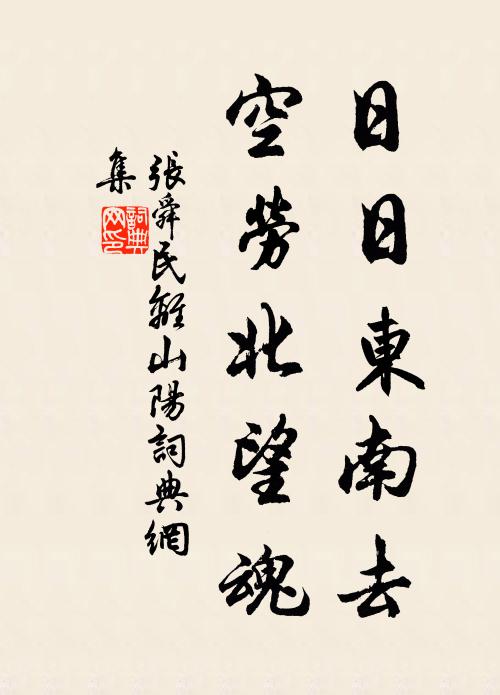 日日東南去
空勞北望魂
張舜民離山陽詞典網
集
詞典
网印